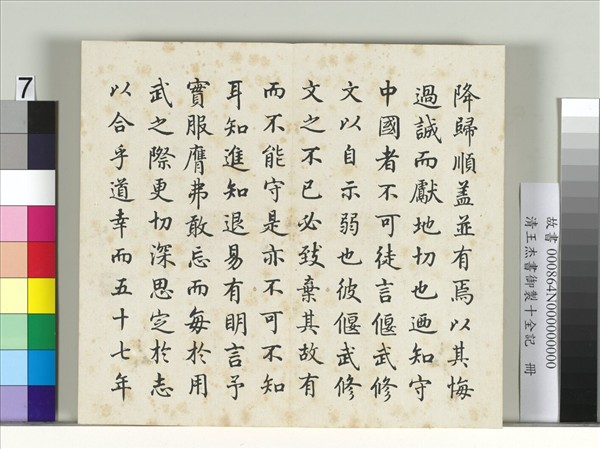 降歸順盖並有焉以其悔
過誠而獻地切也迺知守
中國者不可徒言偃武修
文以自示弱也彼偃武修
文之不已必致棄其故有
而不能守是亦不可不知
耳知進知退易有明言予
實服膺弗敢忘而每於用
武之際更切深思定於志
以合乎道幸而五十七年
故書 000864N000000000
清王杰書御製十全記 冊
7